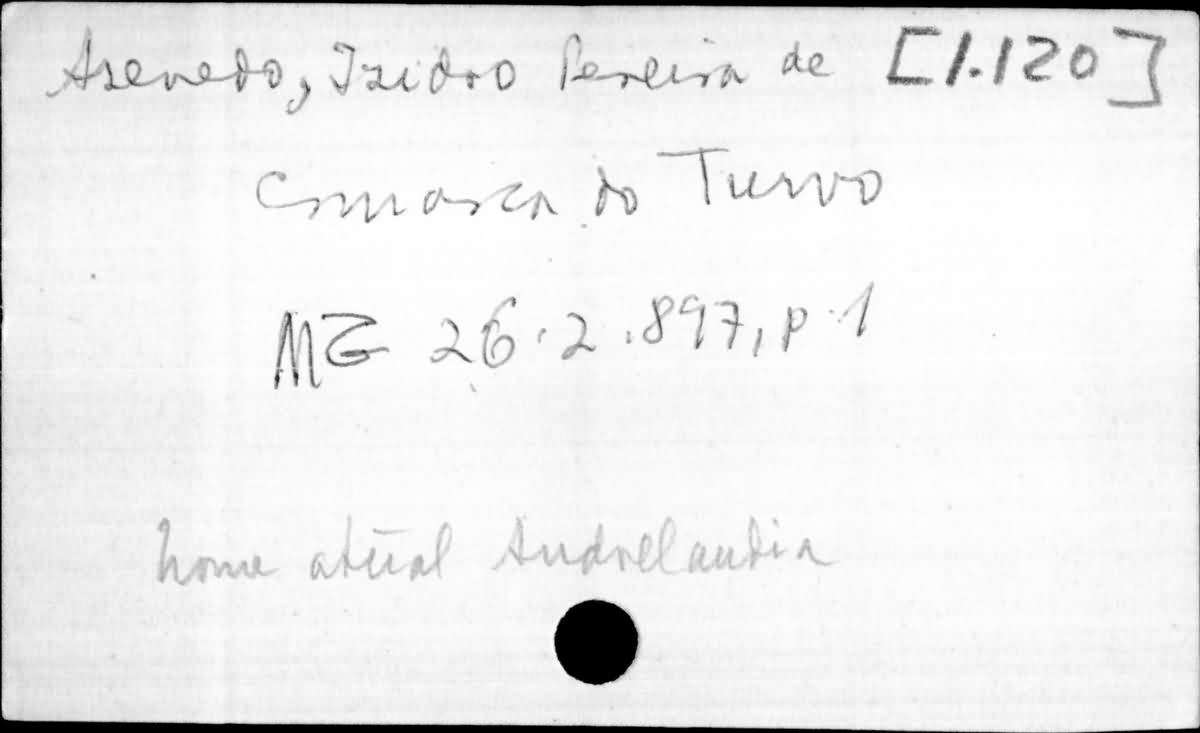 Azevedo, Izidro Pereira de [1.120]
Comarca do Turvo
MG 26.2.897, p.1
nome atual Andrelandia